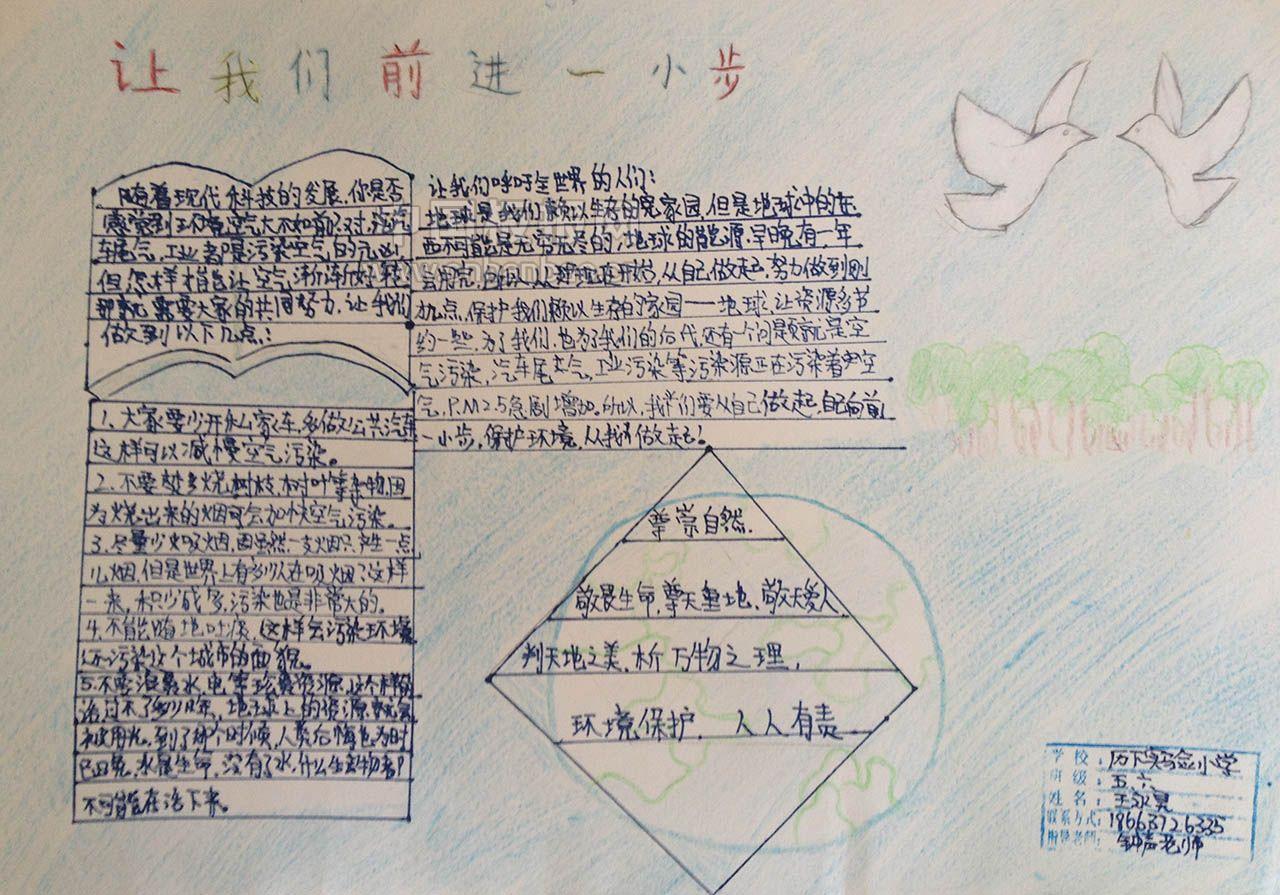 让我们前进一小步
随着现代科技的发展,你是否
感觉到环境空气大不如前了对,汽
车尾气,工业都是污染空气的元凶,
但怎样才能让空气渐渐好转
那就需要大家的共同努力,让我们
做到以下几点:
1、大家要少开私家车,多做公共汽车
这样可以减慢空气污染。
2、不要焚烧树枝,树叶等杂物,因
为烧出来的烟可会加快空气污染。
3、尽量少吸烟,因虽然一支烟只产生一点
儿烟,但是世界上有多少人在吸烟?这样
一来,积少成多,污染也是非常大的。
4、不能随地吐痰,这样会污染环境
还污染这个城市的面貌。
5、不要浪费水,电等珍贵资源,这个样的
话过不了多少年,地球上的资源就会
被用光。到了那个时候,人类后悔也为时
已晚,水是生命,没有了水,什么生物都
不可能在活下来。
让我们呼吁全世界的人们:
地球是我们赖以生存的家园,但是地球中的东
西不可能是无穷无尽的,地球的能源早晚有一年
会用完,所以从现在开始,从自己做起,努力做到刚
才几点,保护我们赖以生存的家园——地球,让资源多节
约一些,为了我们,也为了我们的后代,还有一个问题就是空
气污染,汽车尾气,工业污染等污染源正在污染着空
气,P.M2.5急剧增加。所以,我们要从自己做起,自向前
一小步,保护环境,从我做起!
尊崇自然.
敬畏生命,尊天重地,敬天爱人
判天地之美,析万物之理,
环境保护,人人有责
学校:历下实验小学
班级:五、六
姓名:王
联系方式:18663726335
指导老师:钟声老师